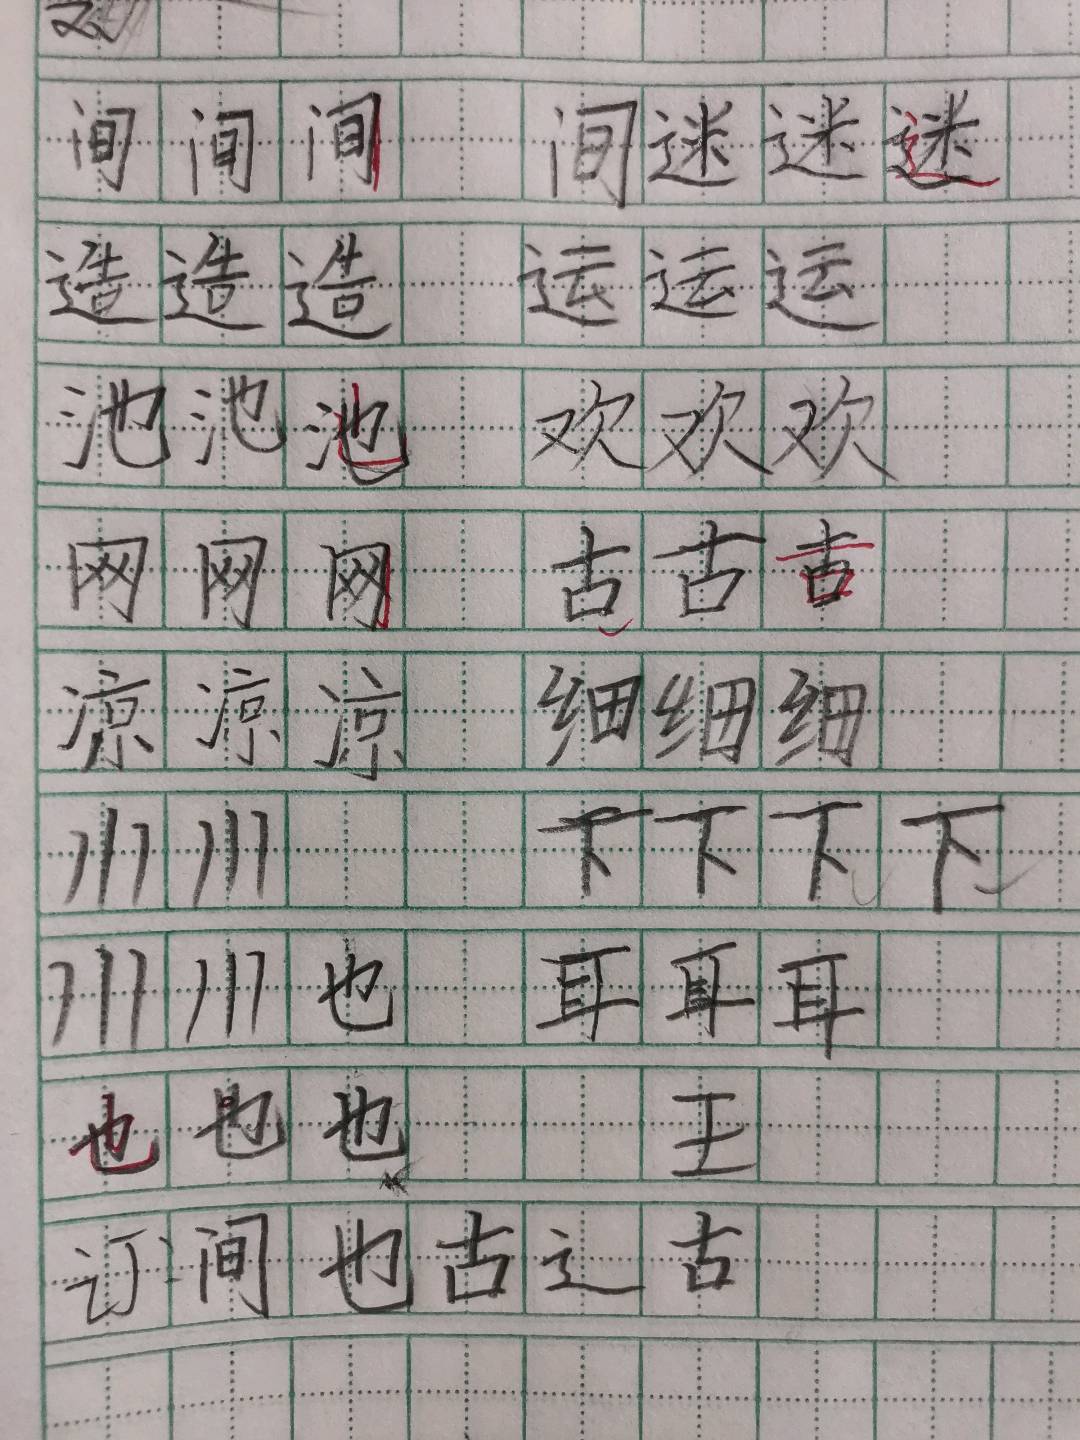 间间间 间迷迷迷
造造造 运运运
池池池 欢欢欢
网网网 古古古
凉凉凉 细细细
川川 下下下下
川川也 耳耳耳
也也也 王
订间也古辶古